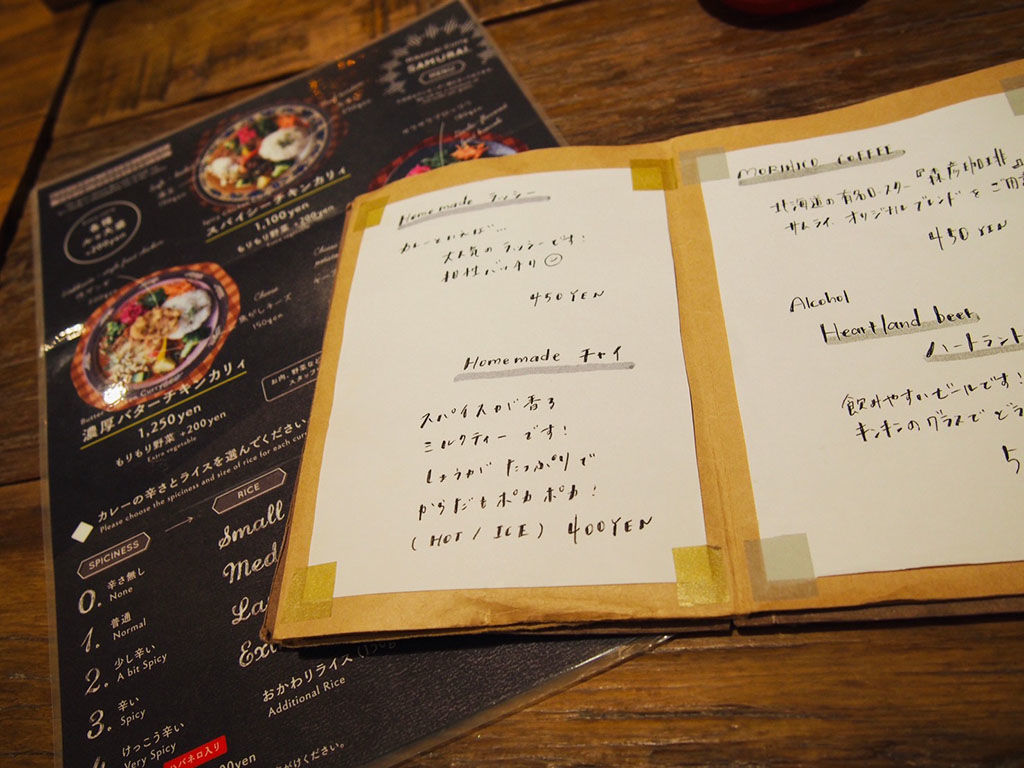 SAMURAI
MENU
スパイシーチキンカリィ
1,100yen
もりもり野菜 +200yen
Extra vegetable
チーズ
150yen
濃厚バターチキンカリィ
1,250yen
もりもり野菜 +200yen
Extra vegetable
カレーの辛さとライスを選んでください
Please choose the spiciness and size of rice for each curry
SPICINESS
RICE
0. 辛さ無し
None
1. 普通
Normal
2. 少し辛い
A bit Spicy
3. 辛い
Spicy
けっこう辛い
Very Spicy
ハバネロ入り
Small
おかわりライス
Additional Rice
Homemade ラッシー
カレーといえば…
大人気のラッシーです!
相性バッチリ
450YEN
Homemade チャイ
スパイスが香る
ミルクティーです!
しょうがたっぷりで
からだもポカポカ!
(HOT / ICE) 400YEN
MORIHICO COFFEE
北海道の有名ロースター『森彦珈琲』
サムライオリジナルブレンドをご用
450 YEN
Alcohol
Heartland beer
ハートラント
飲みやすいビールです!
キンキンのグラスでどう